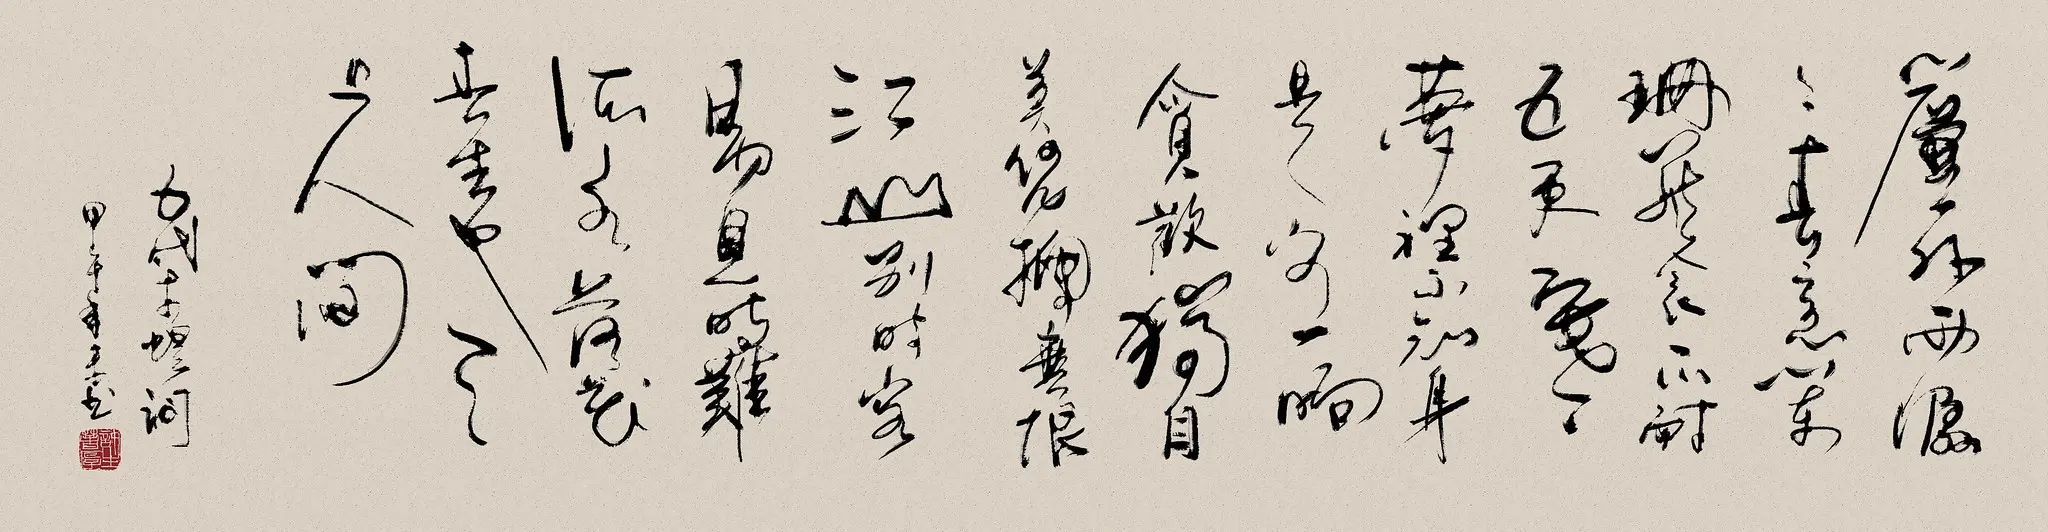 簾外雨潺
〻春意闌
珊羅衾不耐
五更寒
夢裡不知身
是客一晌
貪歡獨自
莫凭欄無限
江山別時容
易見時難
流水落花
春去也天
上人間
五代李煜詞
甲午年書